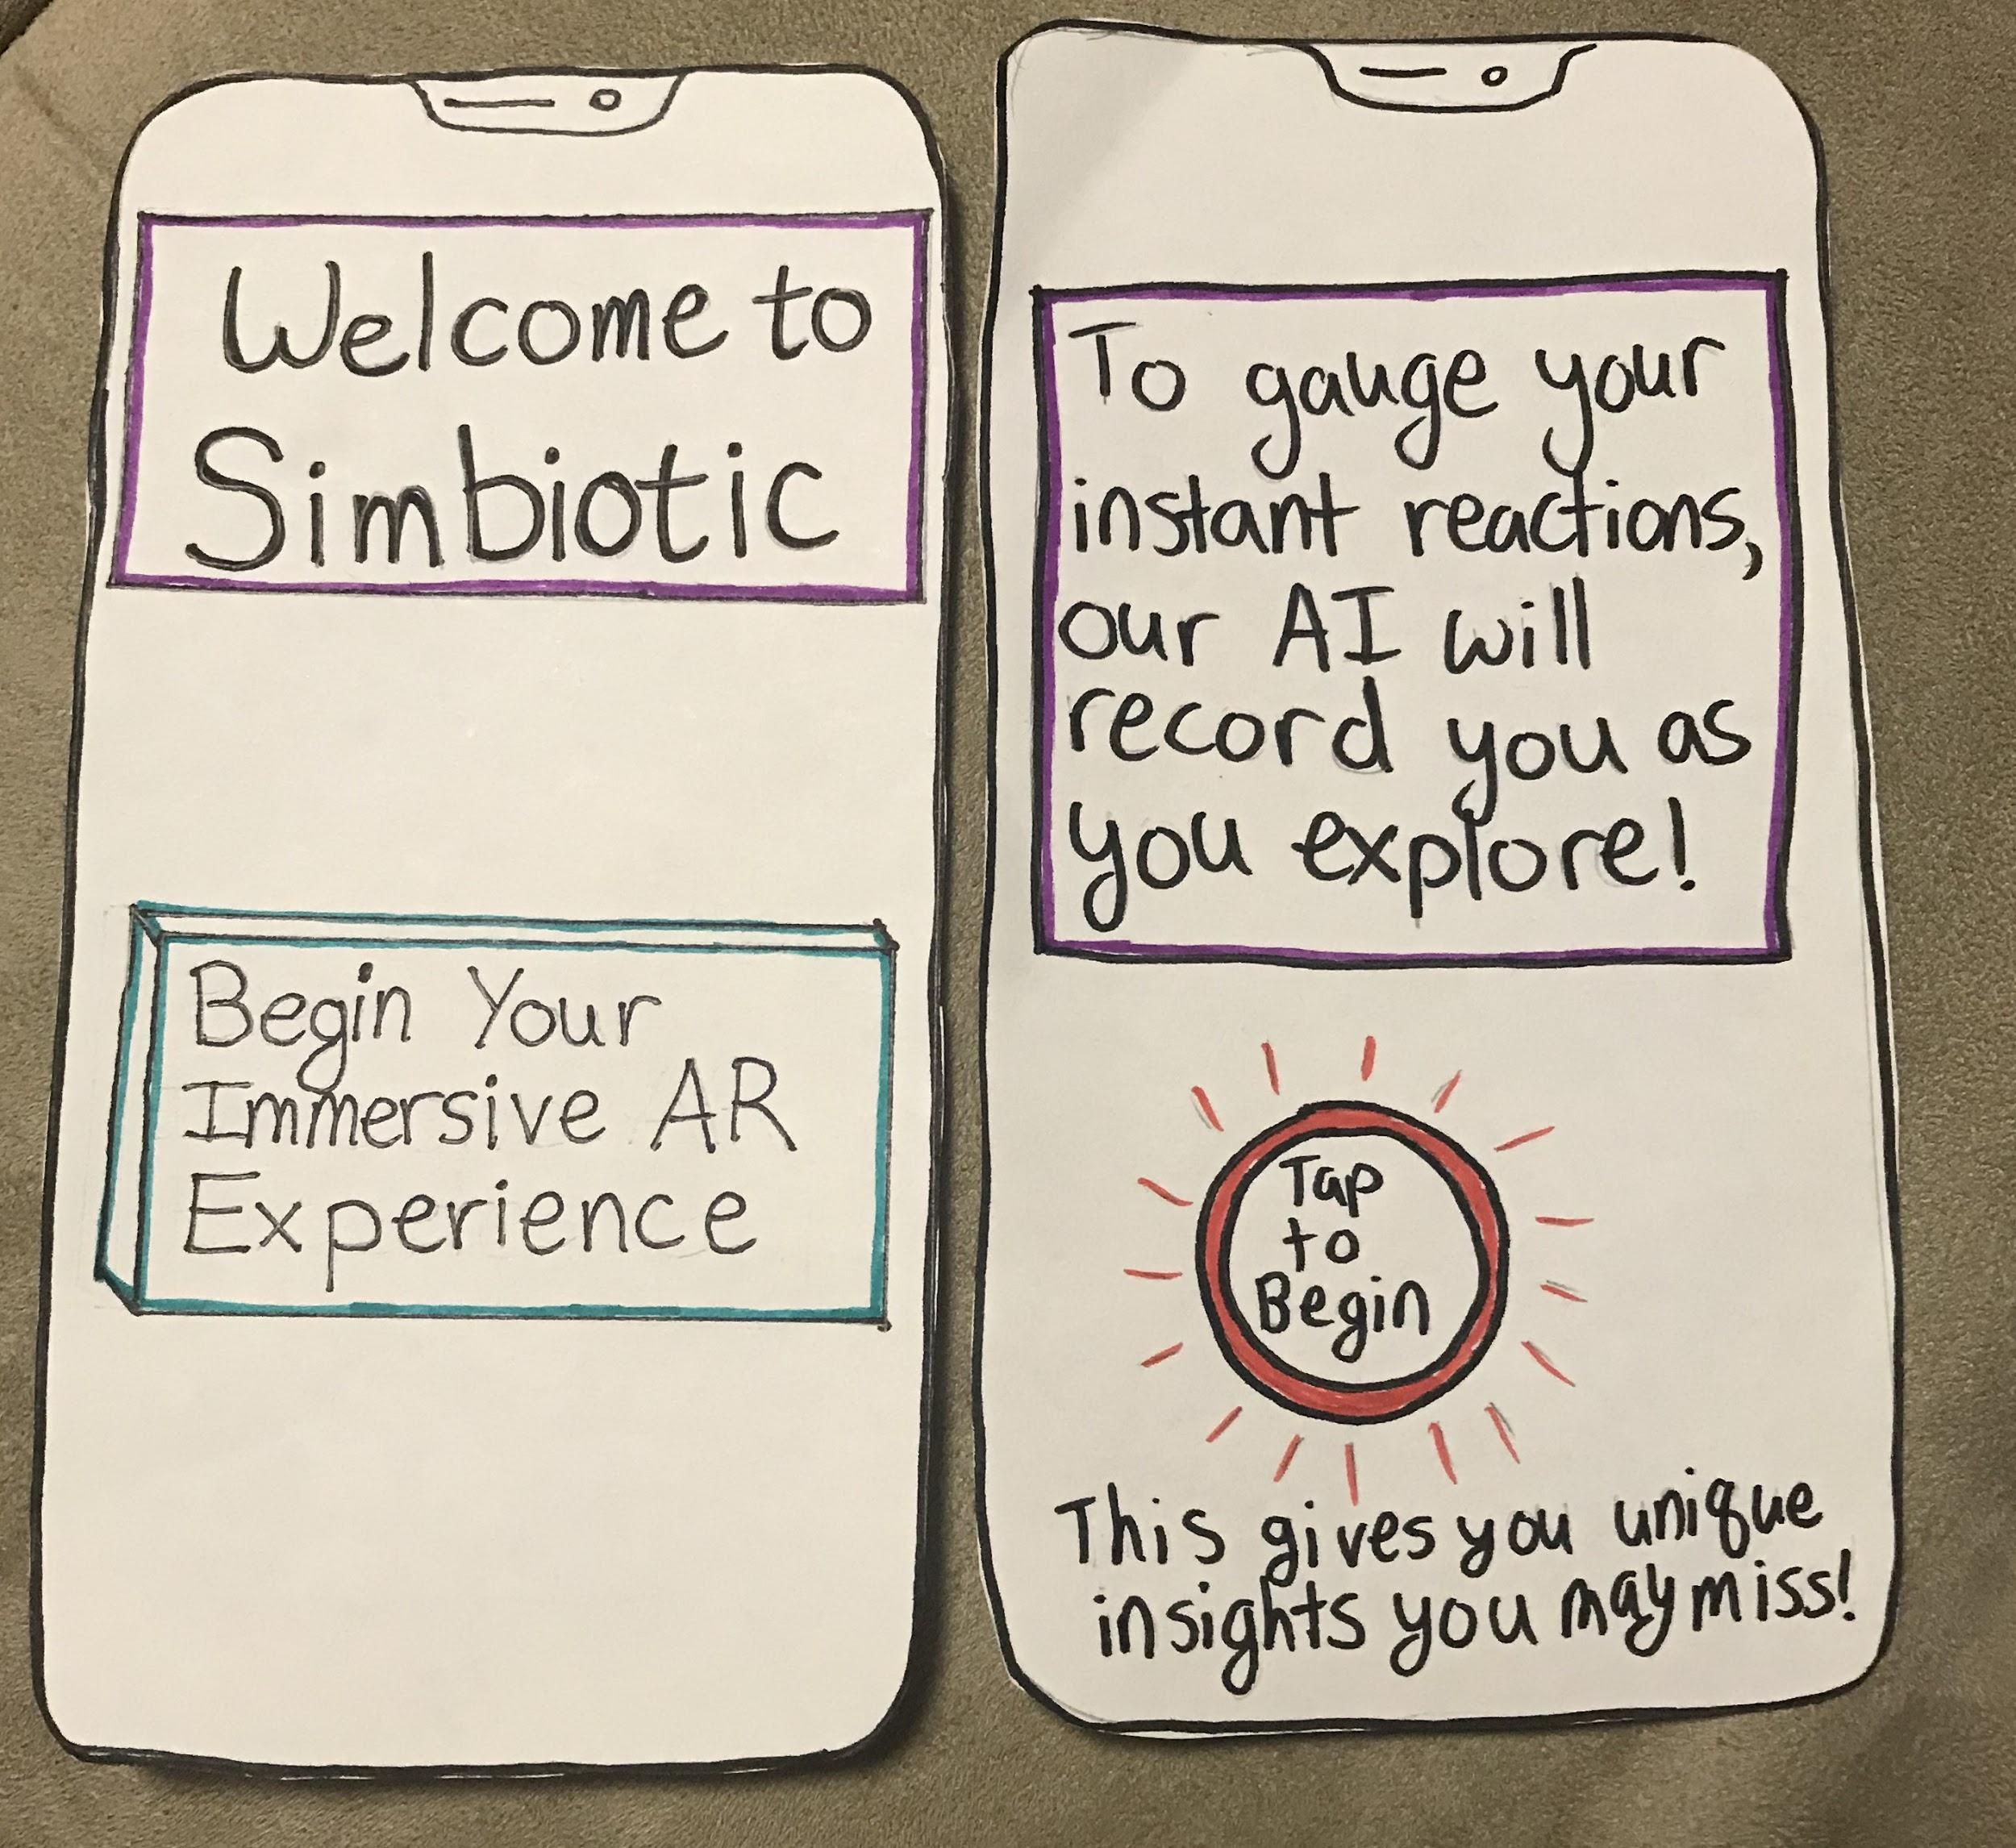 Welcome to
Simbiotic
Begin Your
Immersive AR
Experience
To gauge your
instant reactions,
our AI will
record you as
you explore!
Tap
to
Begin
This gives you unique
insights you may miss!